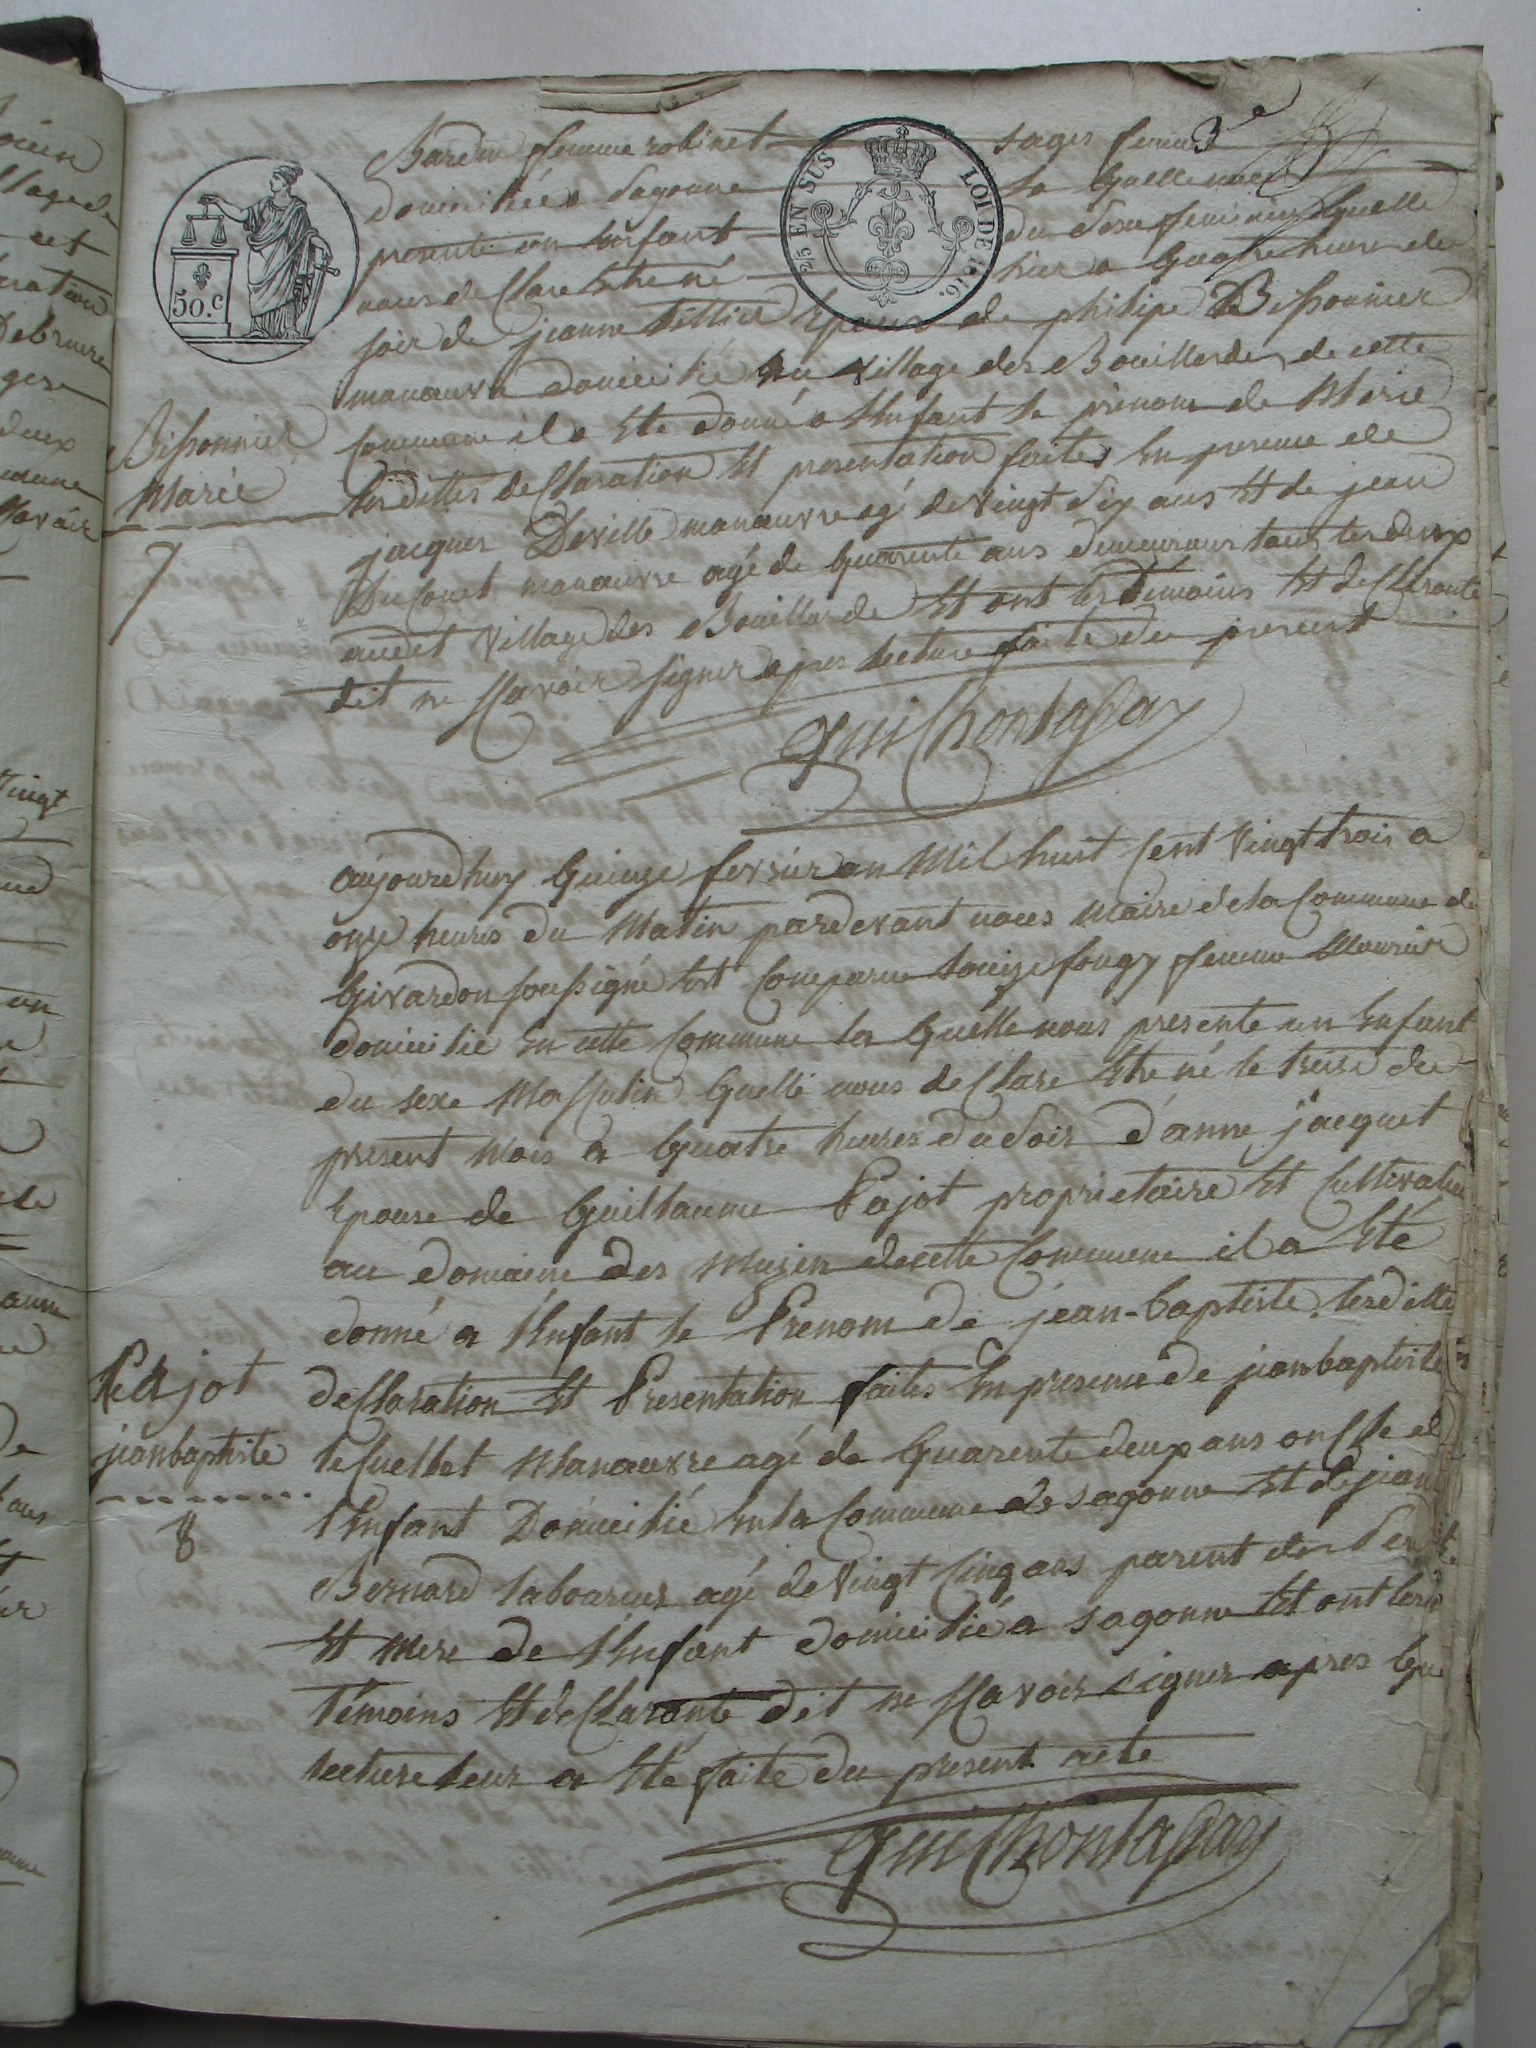 3e
50.c
25 EN SUS LOI DE 1816.
Bardin femme robinet sages femme
domiciliée a Sagonne la quelle nous
presente un Enfant du sexe feminin quelle
nous declare Etre né hier a quatre heure du
soir de jeanne tillier Epouse de philipe Bissonnier
manœuvre domicilié au village des Bouillards de cette
Commune il a Eté donné a lEnfant le prénom de Marie
Bissonnier
Marie
7
lesdittes declaration Et presentation faites En presence de
jacques Deville manœuvre agé de vingt dix ans Et de jean
manœuvre agé de quarente ans demeurans tous les deux
audit village des Bouillards Et ont les témoins Et declarante
dit ne scavoir signer apres lecture faite du present
aujourdhuy quinze fevrier an Mil huit Cent vingt trois a
onze heures du Matin pardevant nous Maire de la Commune de
Givardon soussigné Est Comparue Louize fougy femme Meunier
domicilié En cette Commune la quelle nous presente un Enfant
du sexe Masculin quelle nous declare Etre né le treize du
present Mois a quatre heures du soir d'anne jacquet
Epouse de Guillaume Pajot proprietaire Et Cultivateur
au domaine des de cette Commune il a Eté
donné a lEnfant le Prenom de jean-baptiste. lesditte
Pajot
jeanbaptiste
8
declaration Et Presentation faites En presence de jeanbaptiste
Manœuvre agé de quarente deux ans oncle de
lEnfant Domicilié En la Commune de Sagonne Et de jean
Bernard laboureur agé de vingt cinq ans parent des Pere
Et Mere de lEnfant domicilié a Sagonne Et ont les
témoins Et declarante dit ne scavoir signer apres que
lecture leur a Eté faite du present acte